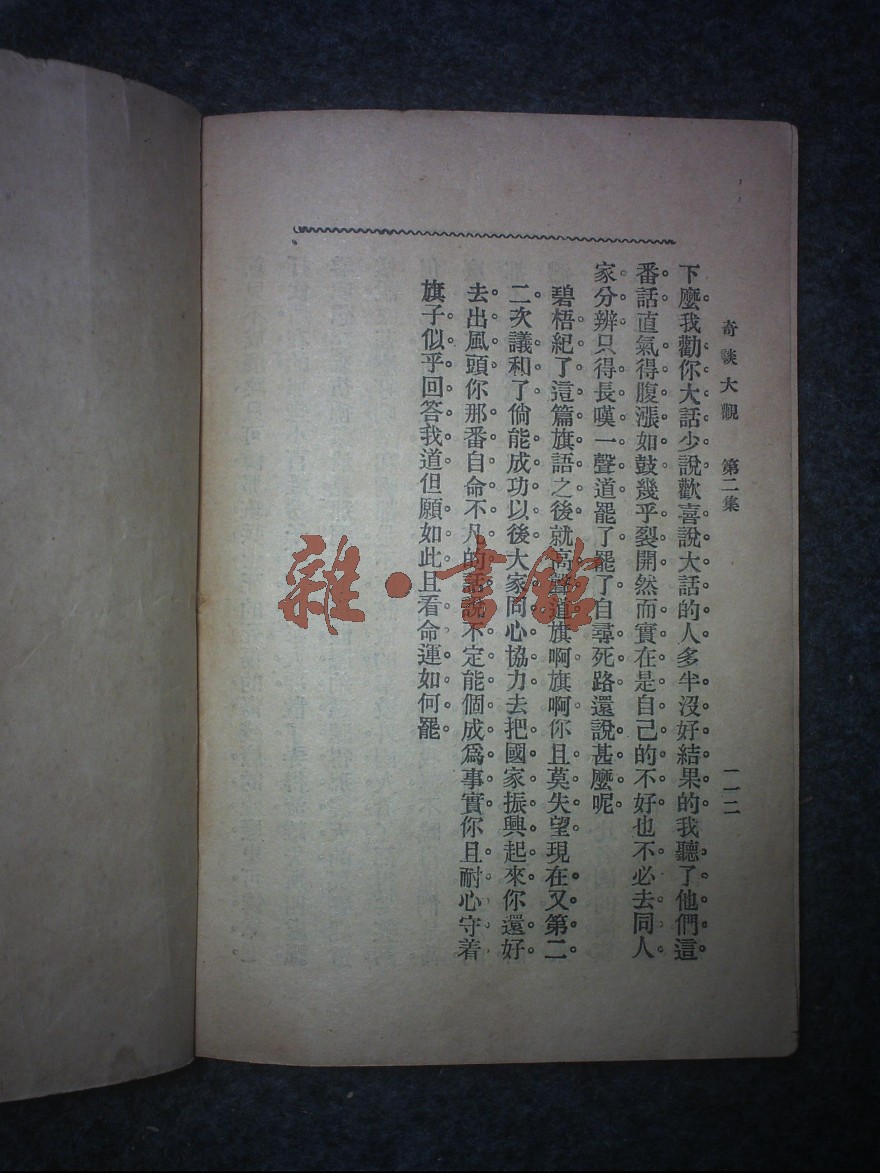 奇談大觀 第二集 一一二
下麼我勸你大話少說歡喜說大話的人多半沒好結果的我聽了他們這
番話直氣得腹漲如鼓幾乎裂開然而實在是自己的不好也不必去同人
家分辨只得長嘆一聲道罷了罷了自尋死路還說甚麼呢
碧梧紀了這篇旗語之後就高聲道旗啊旗啊你且莫失望現在又第二
二次議和了倘能成功以後大家同心協力去把國家振興起來你還好
去出風頭你那番自命不凡的話說不定能個成爲事實你且耐心守着
旗子似乎回答我道但願如此且看命運如何罷
雜·書館